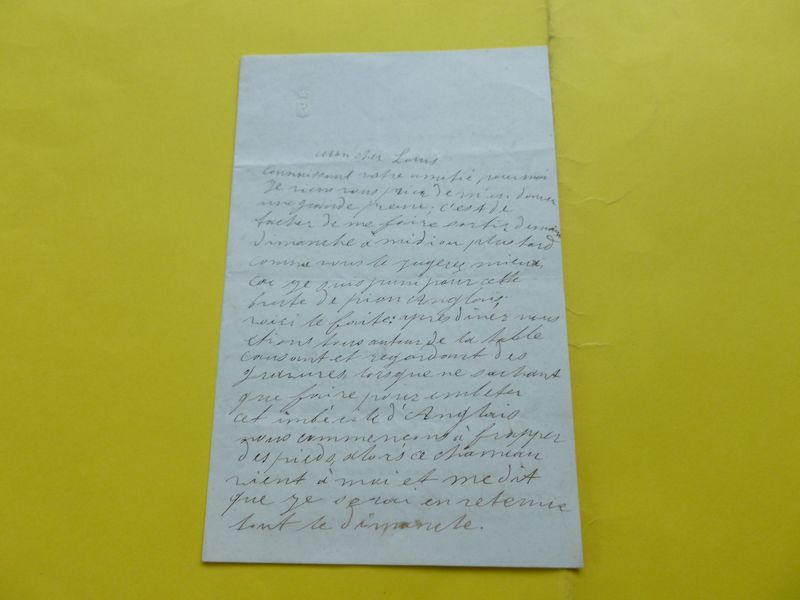 Mon cher Louis
Connaissant votre amitié pour moi
Je viens vous prier de m'en donner
une grande preuve; c'est de
tacher de me faire sortir demain
dimanche à midi ou plus tard
comme vous le jugerez mieux,
car je suis puni pour cette
brute de pion Anglais,
voici le faite: après diner nous
etions tous autour de la table
causant et regardant des
gravures, lorsque ne sachant
que faire pour embeter
cet imbécile d'Anglais
nous commencons à frapper
des pieds, alors ce chameau
vient à moi et me dit
que je serai en retenue
tout le dimanche.